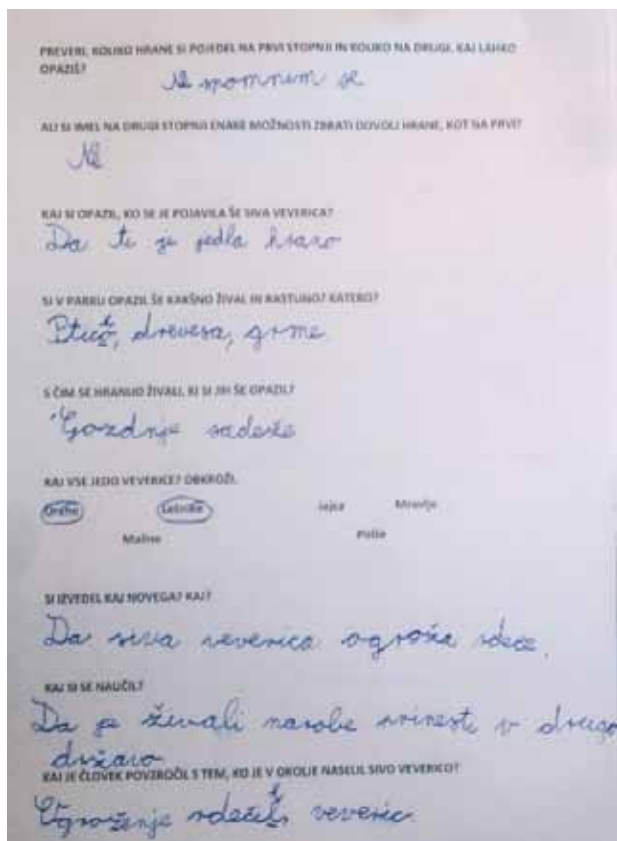 PREVERI, KOLIKO HRANE SI POJEDEL NA PRVI STOPNJI IN KOLIKO NA DRUGI. KAJ LAHKO
OPAZIŠ?
Ne spomnem se
ALI SI IMEL NA DRUGI STOPNJI ENAKE MOŽNOSTI ZBRATI DOVOLJ HRANE, KOT NA PRVI?
Ne
KAJ SI OPAZIL, KO SE JE POJAVILA ŠE SIVA VEVERICA?
Da ti je jedla hrano
SI V PARKU OPAZIL ŠE KAKŠNO ŽIVAL IN RASTLINO? KATERO?
drevesa, grme.
S ČIM SE HRANIJO ŽIVALI, KI SI JIH ŠE OPAZIL?
Gozdnje sadeže
KAJ VSE JEDO VEVERICE? OBKROŽI.
Orehe Lešnike Jajca Mravlje
Maline Polže
SI IZVEDEL KAJ NOVEGA? KAJ?
Da siva veverica ogroža rdeče.
KAJ SI SE NAUČIL?
Da je živali narobe prinesti v drugo
državo
KAJ JE ČLOVEK POVZROČIL S TEM, KO JE V OKOLJE NASELIL SIVO VEVERICO?
Ogroženje rdečih veveric